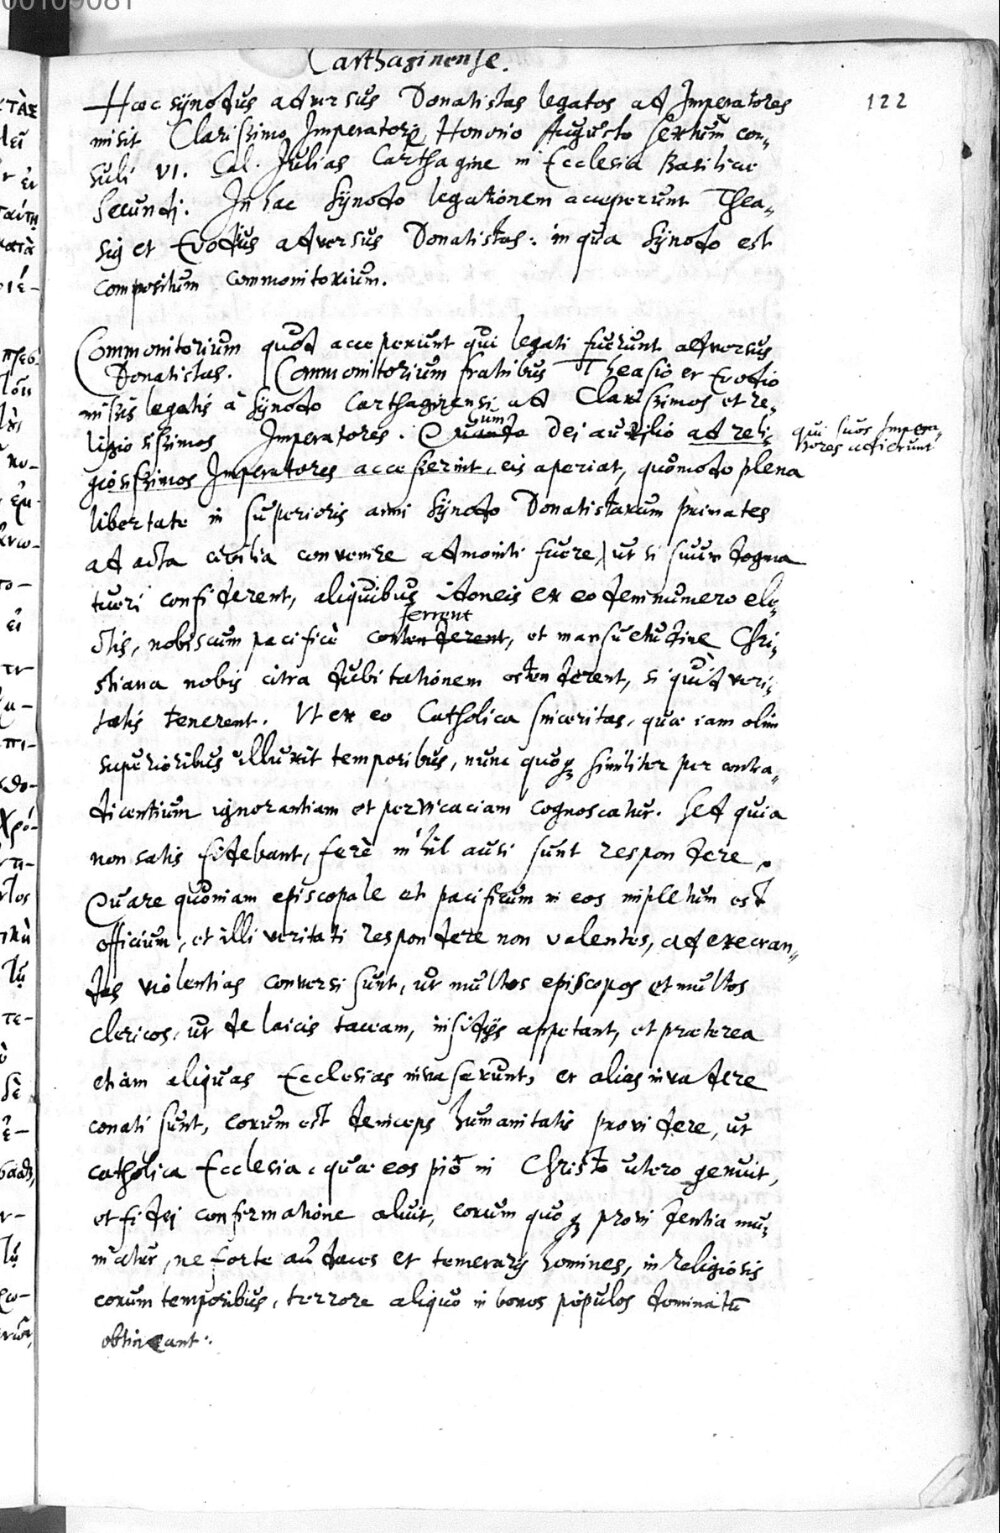 00109081
Carthaginense.
122
Hæc synodus adversus Donatistas legatos ad Imperatores
misit Clarissimo Imperatore Honorio Augusto sextum con-
suli VI. Cal. Julias Carthagine in Ecclesia Basilicæ
secundæ. In hac synodo legationem acceperunt Thea-
sius et Evodius adversus Donatistas: in qua synodo est
compositum commonitorium.
Commonitorium quod acceperunt qui legati fuerunt adversus
Donatistas. Commonitorium fratribus Theasio et Evodio
missis legatis à synodo Carthaginensi ad Clarissimos et re-
ligiosissimos Imperatores. Quando cum Dei auxilio ad reli-
qui suos Impera-
tores adierunt
giosissimos Imperatores accesserint, eis aperiat, quomodo plena
libertate in superioris anni synodo Donatistarum primates
ad acta civilia convenire admoniti fuere, ut si suum dogma
tueri confiderent, aliquibus idoneis ex eodem numero ele-
ctis, nobiscum pacificè contenderent ferrent, et mansuetudine Chri-
stiana nobis citra dubitationem ostenderent, si quid veri-
tatis tenerent. Ut ex eo Catholica sinceritas, quæ iam olim
superioribus illuxit temporibus, nunc quoq similiter per contra-
dicentium ignorantiam et pervicaciam cognoscatur. Sed quia
non satis fidebant, ferè nihil ausi sunt respondere.
Quare quoniam episcopale et pacificum in eos impletum est
officium, et illi veritati respondere non valentes, ad execran-
das violentias conversi sunt, ut multos episcopos et multos
clericos, ut de laicis taceam, insidijs appetant, et præterea
etiam aliquas Ecclesias invaserunt, et alias invadere
conati sunt, eorum est deinceps humanitatis providere, ut
catholica Ecclesia, quæ eos pio in Christo utero genuit,
et fidei confirmatione aluit, eorum quoq providentia mu-
niatur, ne forte audaces et temerarij homines, in religiosis
eorum temporibus, terrore aliquo in bonos populos dominatū
obtineant.